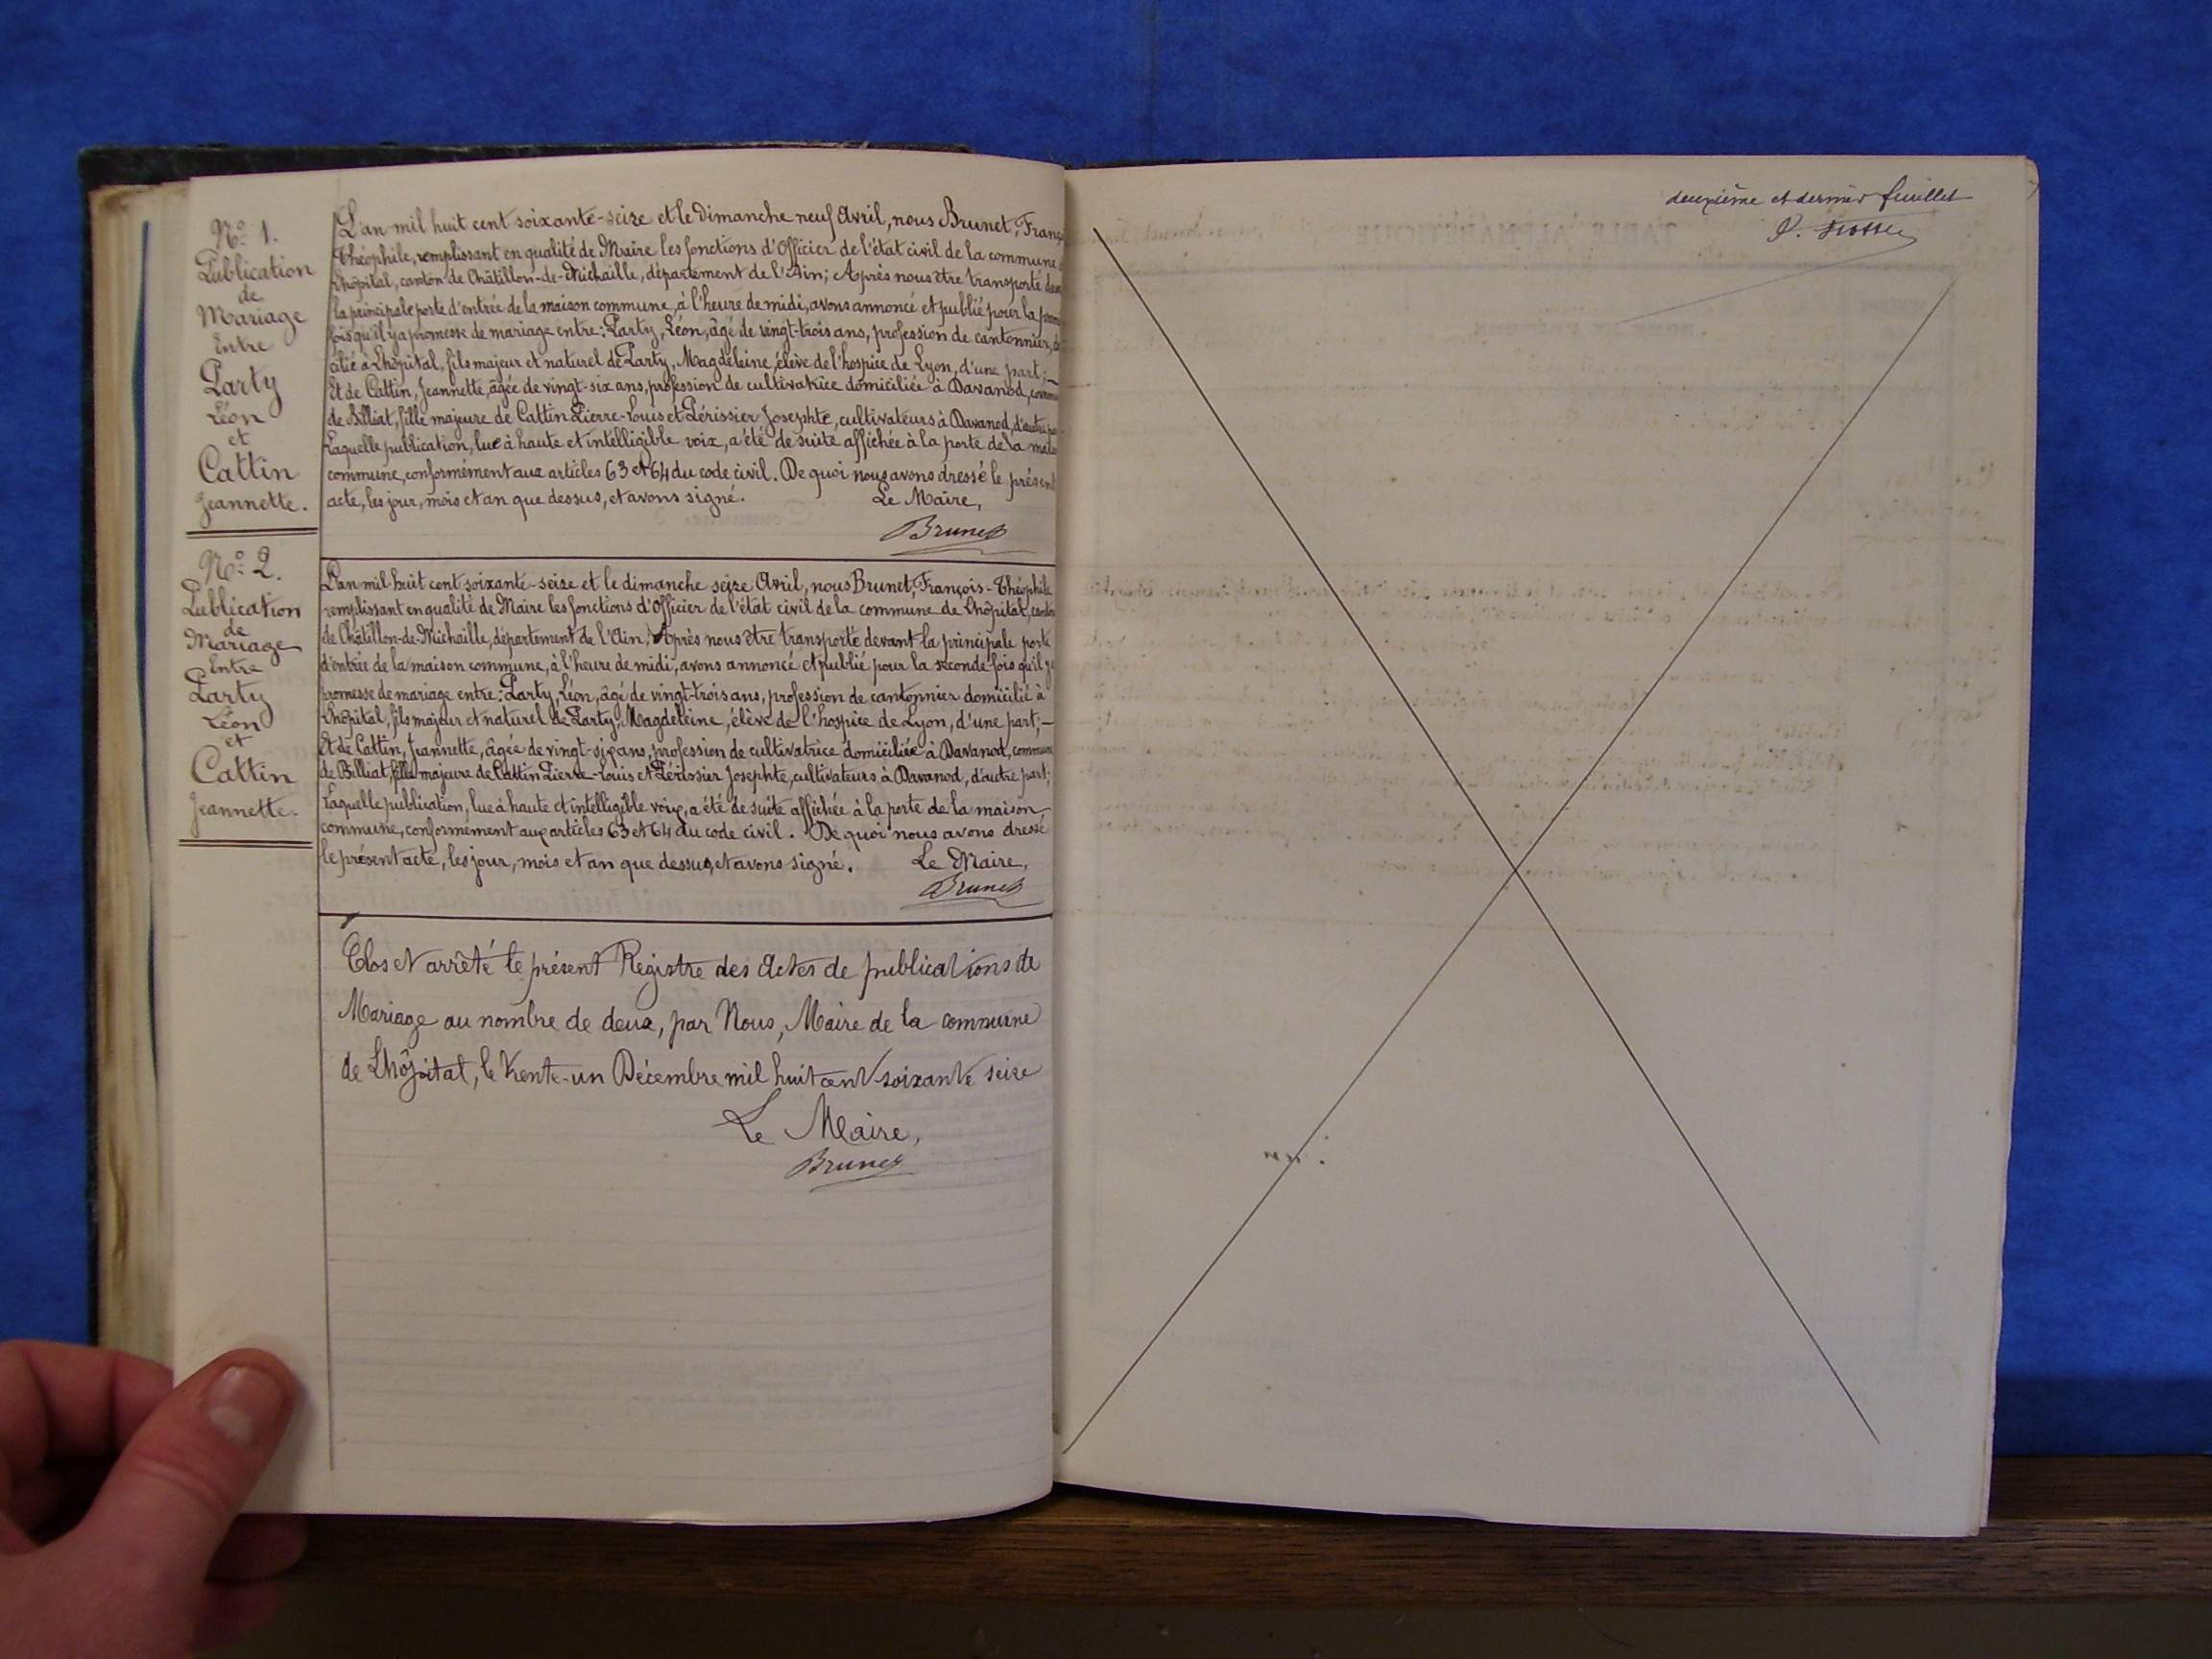 Nº 1.
Publication
de
Mariage
Entre
Party
Léon
et
Cattin
Jeannette.
L'an mil huit cent soixante-seize et le dimanche neuf Avril, nous Brunet, Franç
Théophile, remplissant en qualité de Maire les fonctions d'Officier de l'état civil de la commune
Lhôpital, canton de Châtillon-de-Michaille, département de l'Ain; Après nous être transporté
la principale porte d'entrée de la maison commune, à l'heure de midi, avons annoncé et publié pour la
fois qu'il y a promesse de mariage entre: Party, Léon, âgé de vingt-trois ans, profession de cantonnier,
cilié à Lhôpital, fils majeur et naturel de Party, Magdeleine, élève de l'hospice de Lyon, d'une part;—
Et de Cattin, Jeannette, âgée de vingt-six ans, profession de cultivatrice domiciliée à Davanod,
de Billiat, fille majeure de Cattin Pierre-Louis et Périssier Josephte, cultivateurs à Davanod, d'autre
Laquelle publication, lue à haute et intelligible voix, a été de suite affichée à la porte de la
commune, conformément aux articles 63 et 64 du code civil. De quoi nous avons dressé le présent
acte, les jour, mois et an que dessus, et avons signé. Le Maire,
Brunet
Nº 2.
Publication
de
Mariage
Entre
Party
Léon
et
Cattin
Jeannette.
L'an mil huit cent soixante-seize et le dimanche seize Avril, nous Brunet, François-Théophile
remplissant en qualité de Maire les fonctions d'Officier de l'état civil de la commune de Lhôpital, canton
de Châtillon-de-Michaille, département de l'Ain; Après nous être transporté devant la principale porte
d'entrée de la maison commune, à l'heure de midi, avons annoncé et publié pour la seconde fois qu'il y a
promesse de mariage entre: Party, Léon, âgé de vingt-trois ans, profession de cantonnier domicilié à
Lhôpital, fils majeur et naturel de Party, Magdeleine, élève de l'hospice de Lyon, d'une part;—
Et de Cattin, Jeannette, âgée de vingt-six ans, profession de cultivatrice domiciliée à Davanod, commune
de Billiat, fille majeure de Cattin Pierre-Louis et Périssier Josephte, cultivateurs à Davanod, d'autre part;
Laquelle publication, lue à haute et intelligible voix, a été de suite affichée à la porte de la maison
commune, conformément aux articles 63 et 64 du code civil. De quoi nous avons dressé
le présent acte, les jour, mois et an que dessus, et avons signé. Le Maire,
Brunet
Clos et arrêté le présent Registre des Actes de publications de
Mariage au nombre de deux, par Nous, Maire de la commune
de Lhôpital, le trente-un Décembre mil huit cent soixante seize
Le Maire,
Brunet
deuxième et dernier feuillet